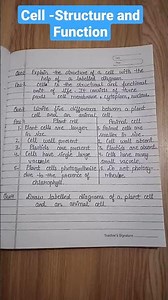 Cell -Structure and
Function
Explain the structure of a cell with the
help of a labelled diagram.
Cell is the structural and functional
unit of life. It consists of three
parts - cell membrane, cytoplasm, nucleus.
Write five difference between a plant
cell and an animal cell.
Plant cell Animal cell
1. Plant cells are larger 1. Animal cells are
in size. smaller in size.
2. Cell wall present 2. Cell wall absent
3. Plastids are present 3. Plastids are absent
4. Cells have single large 4. Cells have many
vacuole small vacuole.
5. Plant cells photosynthesise 5. Do not photosy-
due to the presence of nthesise.
chlorophyll.
Draw labelled diagrams of a plant cell
and an animal cell.
Teacher's Signature